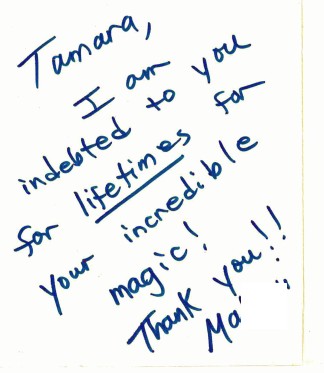 Tamara,
I am
indebted to you
for lifetimes for
your incredible
magic!
Thank you!!
Ma